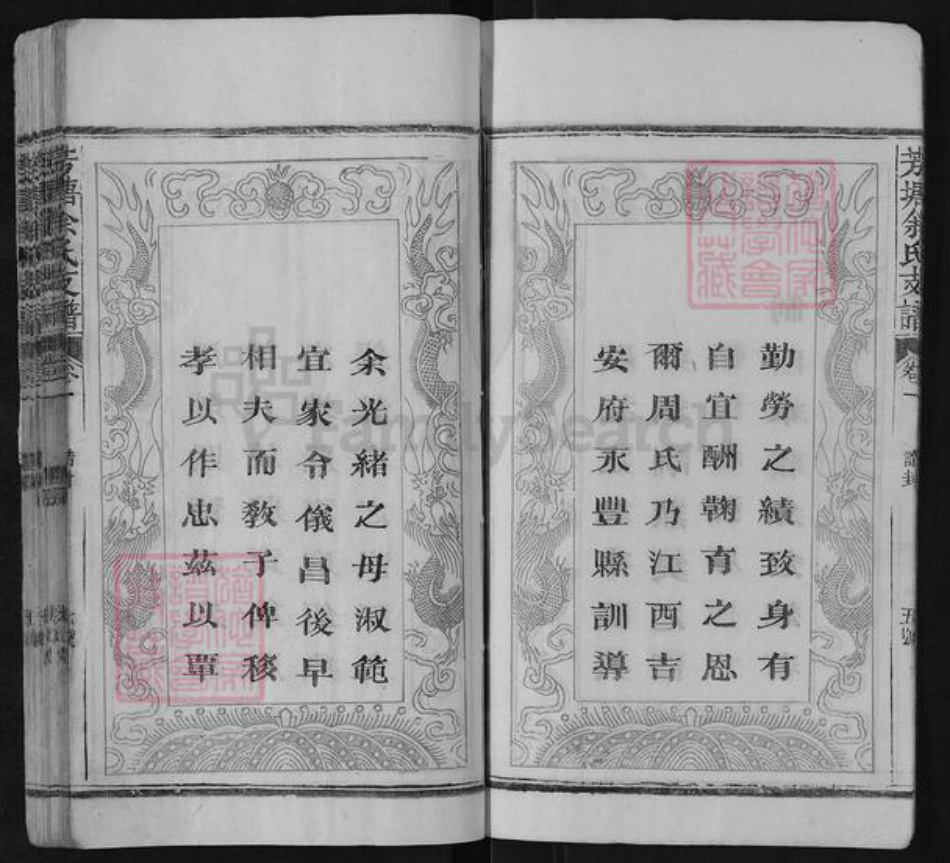 芳塘余氏支譜
卷一
誥封
勤勞之績致身有
自宜酬鞠育之恩
爾周氏乃江西吉
安府永豐縣訓導
余光緒之母淑範
宜家令儀昌後早
相夫而教子俾移
孝以作忠茲以覃
FamilySearch